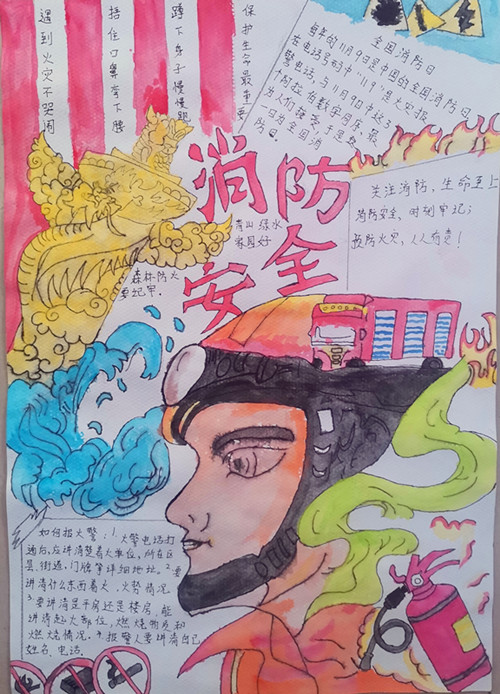 遇到火灾不哭闹
捂住口鼻弯下腰
蹲下身子慢慢跑
保护生命最重要
全国消防日
每年的11月9日是中国的全国消防日
在电话号码中"119"是火灾报
警电话,与11月9日中这3
个阿拉伯数字同序,最
为人们接受,于是定
一日为全国消
防日。
消防
安全
青山绿水
家园好
森林防火
要记牢.
关注消防,生命至上
消防安全,时刻牢记;
预防火灾,人人有责!
如何报火警:1.火警电话打
通后,应讲清楚着火单位,所在区
县、街道、门牌等详细地址。2.要
讲清什么东西着火,火势情况
3.要讲清是平房还是楼房,能
讲清起火部位,燃烧物质和
燃烧情况。4.报警人要讲清自己
姓名、电话.